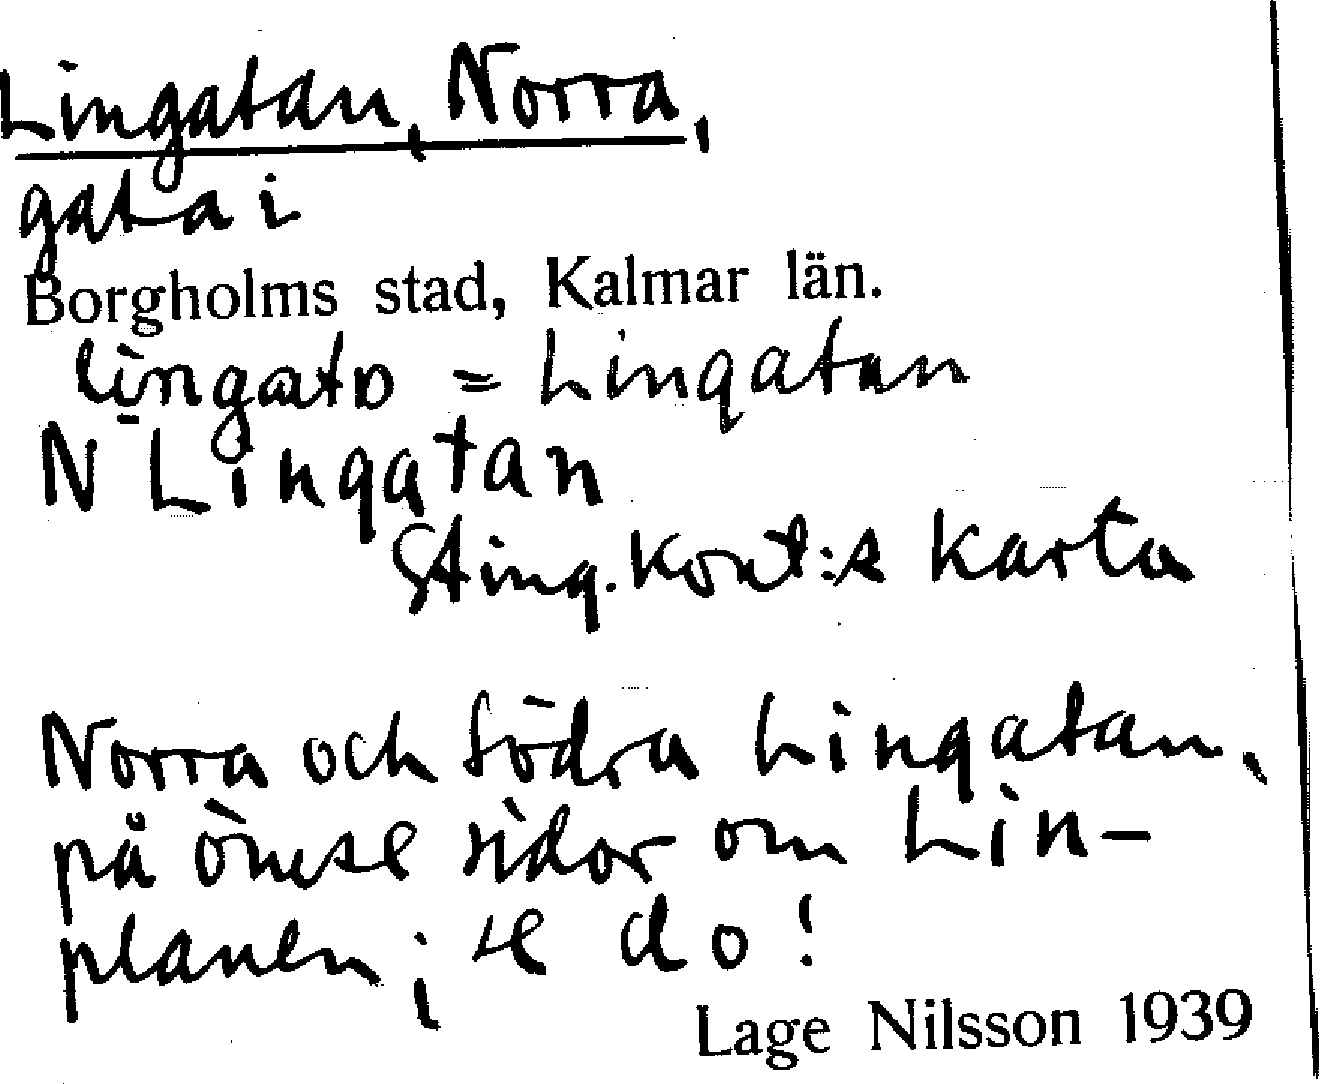 Lingatan, Norra,
gata i
Borgholms stad, Kalmar län.
= Lingatan
N Lingatan
Sting. kont:s karta
Norra och Södra Lingatan,
på ömse sidor om Lin-
planen; se do!
Lage Nilsson 1939